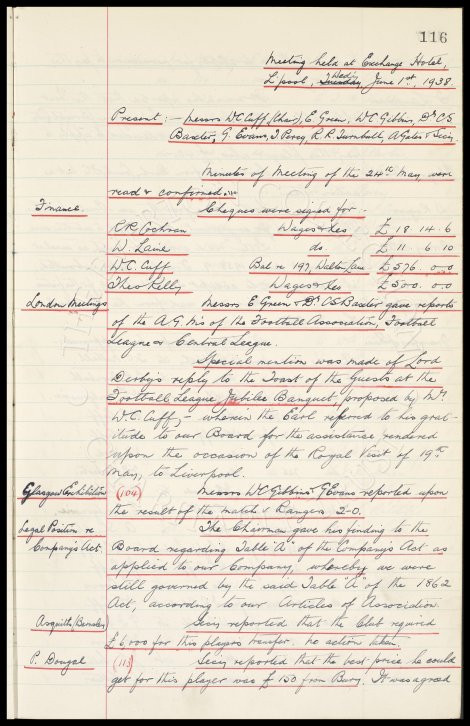 116
Meeting held at Exchange Hotel,
L'pool, Tuesday Wed. June 1st, 1938.
Present :- Messrs W.C. Cuff, (Chair), E. Green, W.C. Gibbins, Dr C.S.
Baxter, G. Evans, J Percy, R.R. Turnbull, A Gates & Secy
Minutes of Meeting of the 24th May were
read & confirmed.
Finance. Cheques were signed for -
R.R. Cochran Wages &c £ 18. 14. 6
W. Laine do £ 11. 6. 10
W.C. Cuff Bal re 197, Walton Lane £576. 0. 0
Theo Kelly Wages &c £500. 0. 0
London Meetings Messrs E Green & Dr C.S. Baxter gave reports
of the A.G.Ms of the Football Association, Football
League & Central League.
Special mention was made of Lord
Derby's reply to the Toast of the Guests at the
Football League Jubilee Banquet, proposed by Mr
W.C. Cuff, - wherein the Earl referred to his grat-
itude to our Board for the assistance rendered
upon the occasion of the Royal Visit of 19th
May, to Liverpool.
Glasgow Exhibition (104) Messrs W.C. Gibbins & G Evans reported upon
the result of the match v Rangers 2-0.
Legal Position re The Chairman gave his finding to the
Company's Act. Board regarding Table "A" of the Company's Act as
applied to our Company, whereby we were
still governed by the said Table "A" of the 1862
Act, according to our Articles of Association.
Asquith (Barnsley) Secy reported that the Club required
£6,000 for this players transfer. no action taken.
P. Dougal (113) Secy reported that the best price he could
get for this player was £150 from Bury. It was agreed